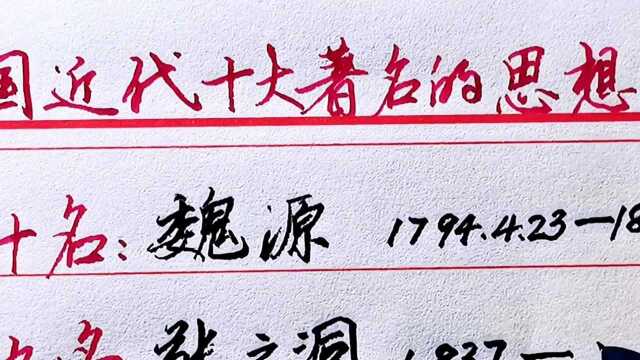 国近代十大著名的思想
十名：魏源 1794.4.23—18
九名 张之洞 1837—